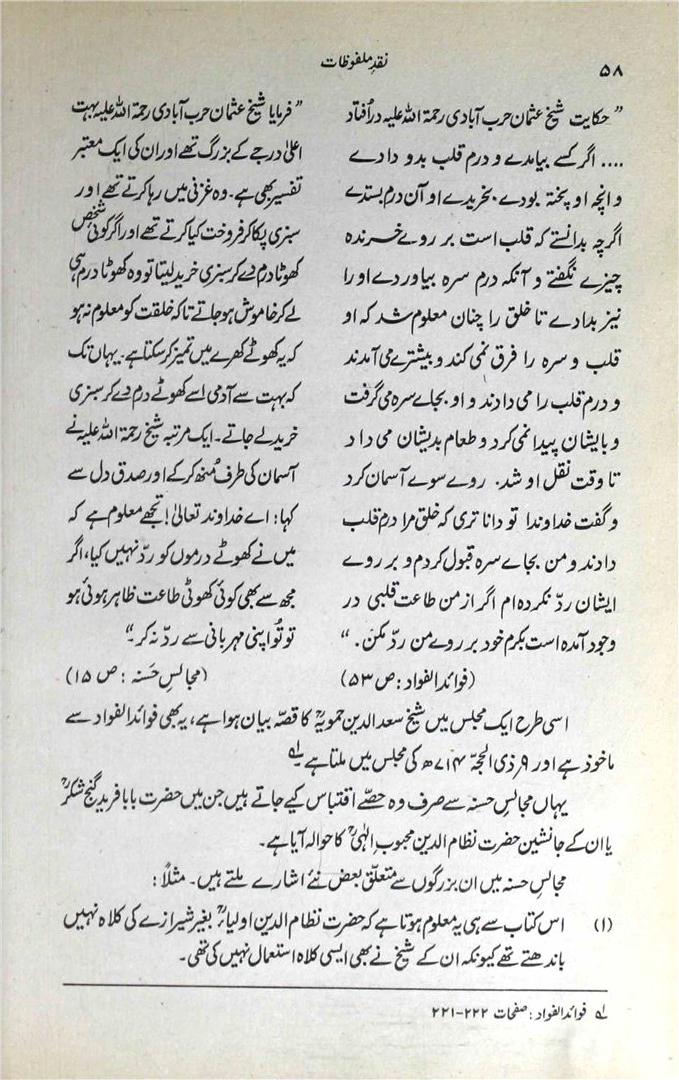 ۵۸
نقدِ ملفوظات
” حکایت شیخ عثمان حرب آبادی رحمۃ اللہ علیہ در اُفتاد
.... اگر کسے بیامدے و درم قلب بدو دادے
و انچہ او پختہ بودے بخریدے او آن درم بستدے
اگرچہ بدانستے کہ قلب است بر روے خرندہ
چیزے نگفتے و آنکہ درم سرہ بیاوردے او را
نیز بدادے تا خلق را چنان معلوم شد کہ او
قلب و سرہ را فرق نمی کند و بیشترے می آمدند
و درم قلب را می دادند و او بجاے سرہ می گرفت
و بایشان پیدا نمی کرد و طعام بدیشان می داد
تا وقت نقل او شد۔ روے سوے آسمان کرد
و گفت خداوندا تو دانا تری کہ خلق مرا درم قلب
دادند و من بجاے سرہ قبول کردم و بر روے
ایشان ردّ نکردہ ام اگر از من طاعت قلبی در
وجود آمدہ است بکرم خود بر روے من ردّ مکن۔ “
(فوائد الفواد : ص ۵۳)
” فرمایا شیخ عثمان حرب آبادی رحمۃ اللہ علیہ بہت
اعلیٰ درجے کے بزرگ تھے اور ان کی ایک معتبر
تفسیر بھی ہے۔ وہ غزنی میں رہا کرتے تھے اور
سبزی پکا کر فروخت کیا کرتے تھے اور اگر کوئی شخص
کھوٹا درم دے کر سبزی خرید لیتا تو وہ کھوٹا درم ہی
لے کر خاموش ہو جاتے تاکہ خلقت کو معلوم نہ ہو
کہ یہ کھوٹے کھرے میں تمیز کر سکتا ہے۔ یہاں تک
کہ بہت سے آدمی اسے کھوٹے درم دے کر سبزی
خرید لے جاتے۔ ایک مرتبہ شیخ رحمۃ اللہ علیہ نے
آسمان کی طرف مُنھ کر کے اور صدق دل سے
کہا : اے خداوند تعالیٰ! تجھے معلوم ہے کہ
میں نے کھوٹے درموں کو ردّ نہیں کیا، اگر
مجھ سے بھی کوئی کھوٹی طاعت ظاہر ہوئی ہو
تو تُو اپنی مہربانی سے ردّ نہ کر۔“
(مجالسِ حَسنہ : ص ۱۵)
اسی طرح ایک مجلس میں شیخ سعد الدین حمویہؒ کا قصّہ بیان ہوا ہے، یہ بھی فوائد الفواد سے
ماخوذ ہے اور ۹ ذی الحجّہ ۷۱۴ھ کی مجلس میں ملتا ہے لہ
یہاں مجالسِ حسنہ سے صرف وہ حصّے اقتباس کیے جاتے ہیں جن میں حضرت بابا فرید گنج شکرؒ
یا ان کے جانشین حضرت نظام الدین محبوبِ الٰہیؒ کا حوالہ آیا ہے۔
مجالسِ حسنہ میں ان بزرگوں سے متعلّق بعض نئے اشارے ملتے ہیں۔ مثلاً :
(۱) اس کتاب سے ہی یہ معلوم ہوتا ہے کہ حضرت نظام الدین اولیاءؒ بغیر شیرازے کی کلاہ نہیں
باندھتے تھے کیونکہ ان کے شیخ نے بھی ایسی کلاہ استعمال نہیں کی تھی۔
لہ فوائد الفواد : صفحات ۲۲۲-۲۲۱